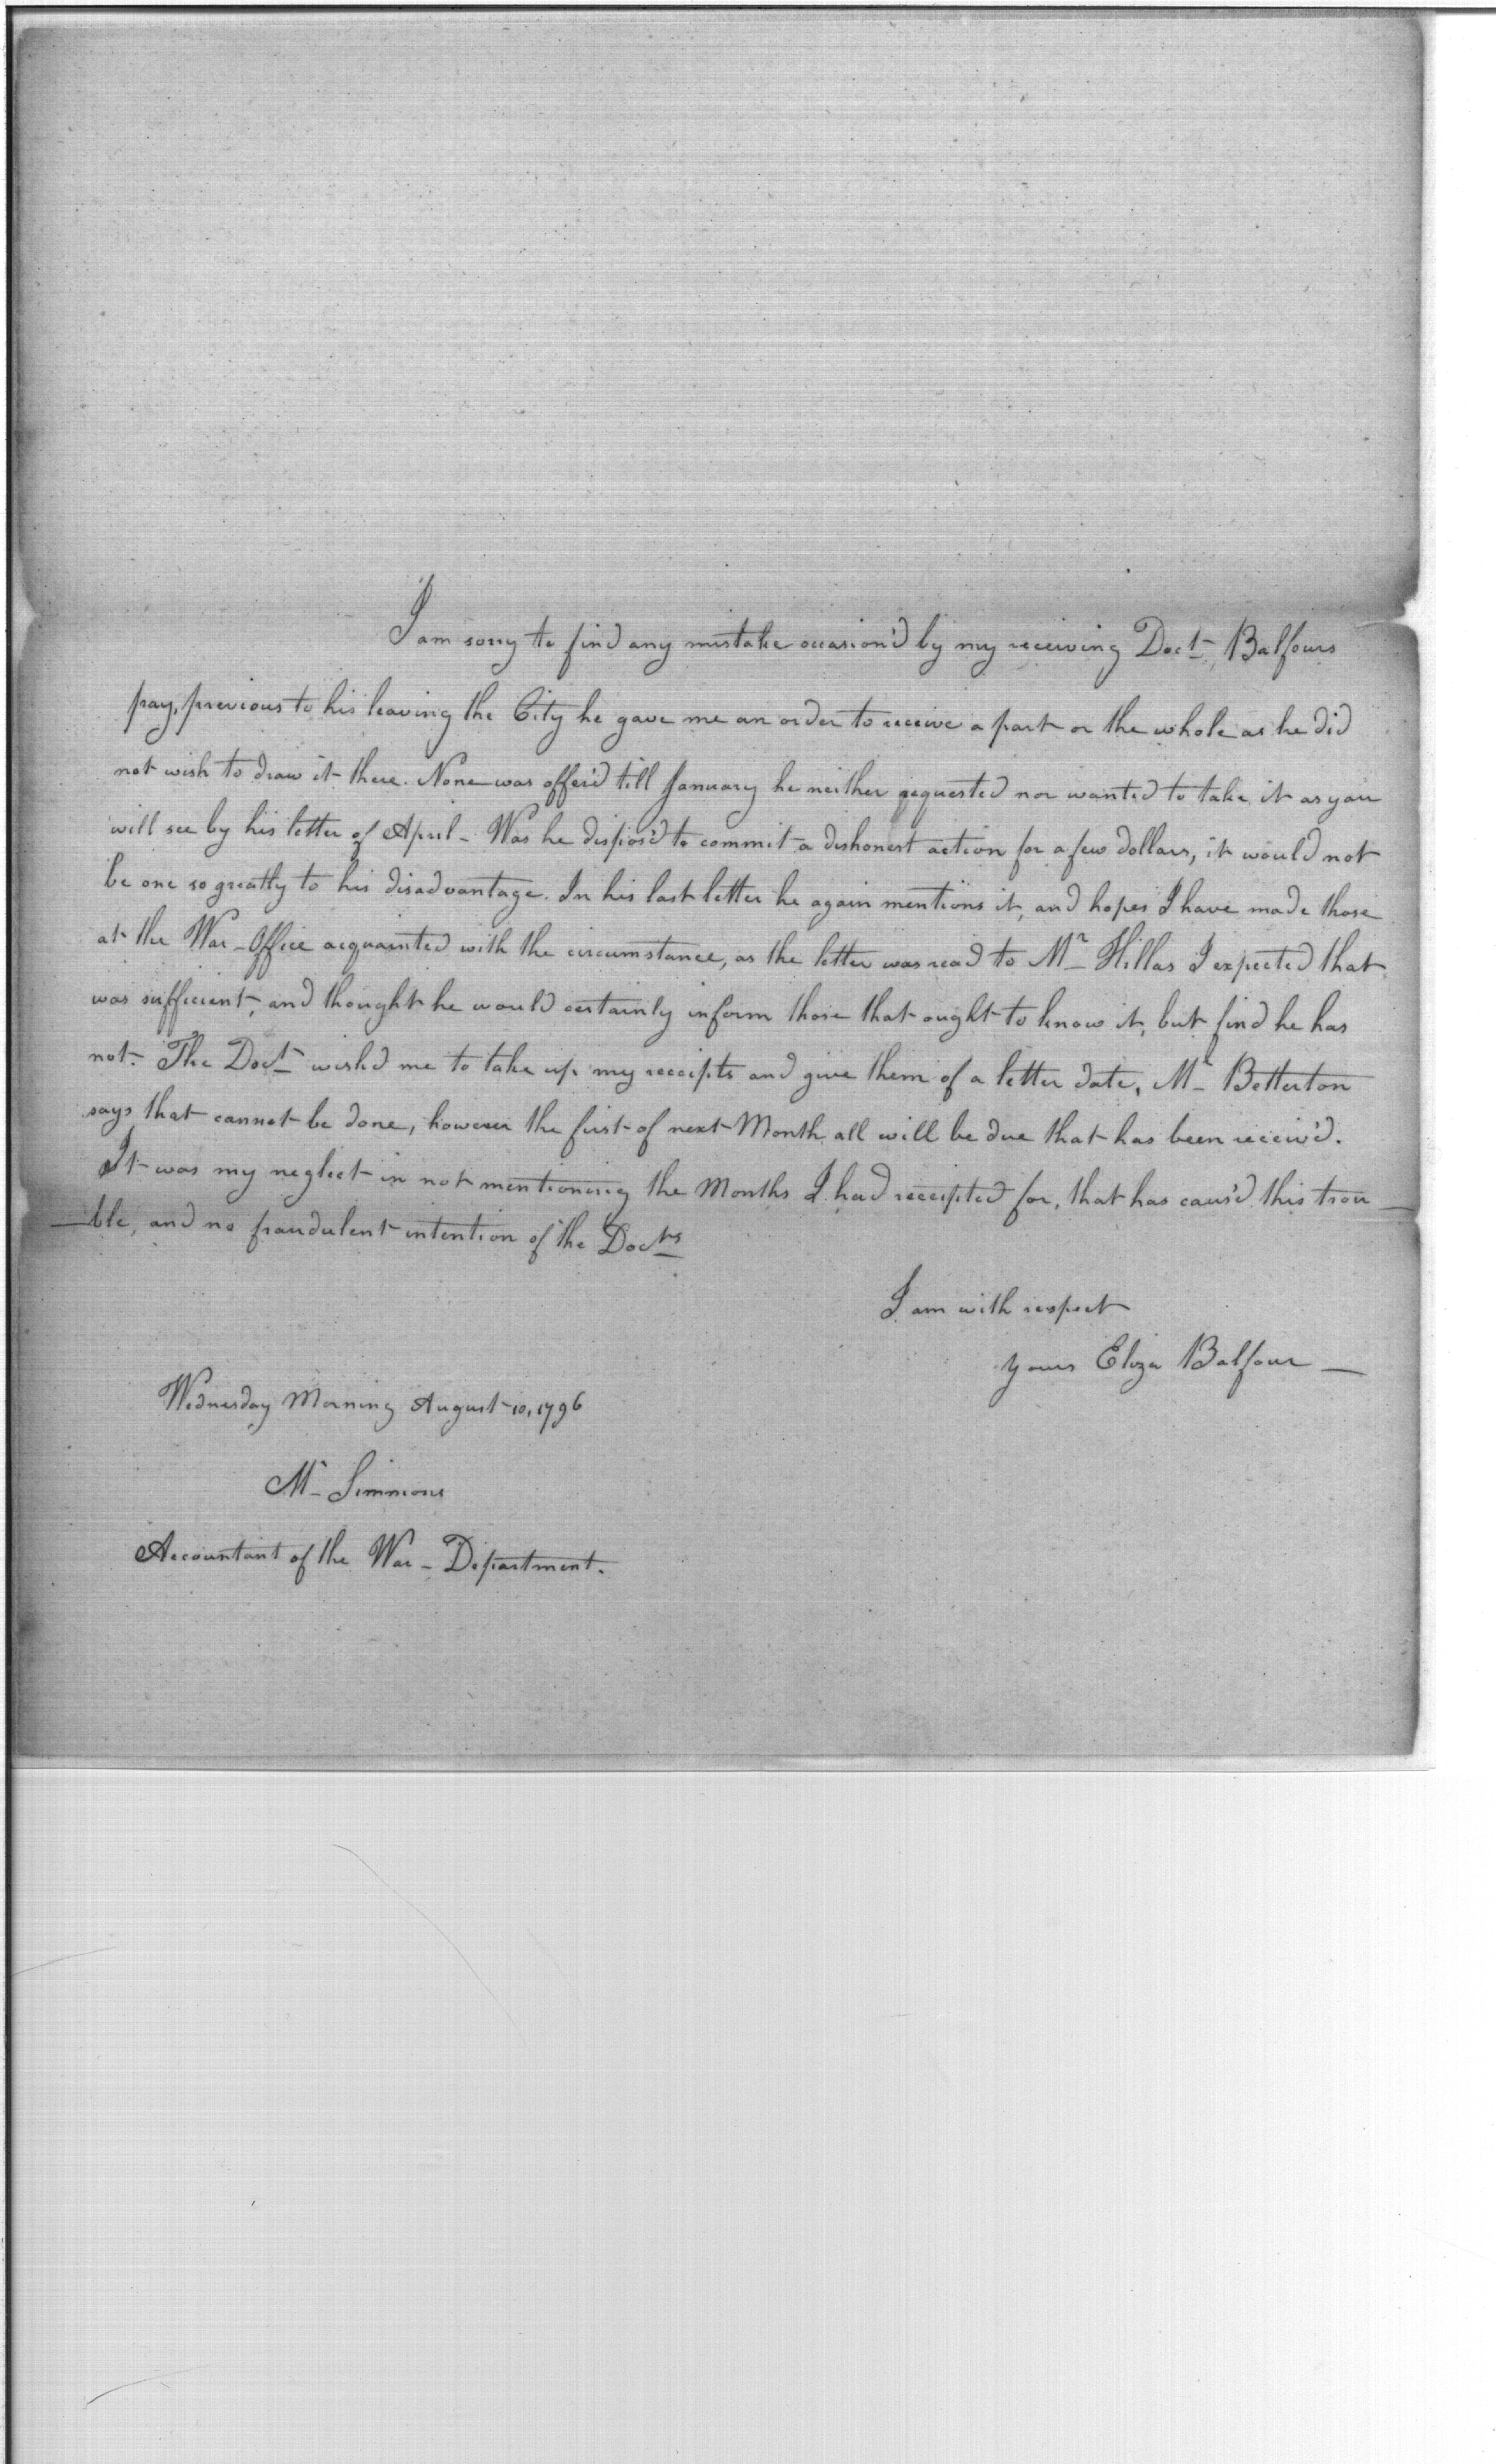 I am sorry to find any mistake occasion'd by my receiving Doct Balfours
pay, previous to his leaving the City he gave me an order to receive a part or the whole as he did
not wish to draw it there. None was offer'd till January he neither requested nor wanted to take it as you
will see by his letter of April - Was he dispos'd to commit a dishonest action for a few dollars, it would not
be one so greatly to his disadvantage. In his last letter he again mentions it, and hopes I have made those
at the War-Office acquainted with the circumstance, as the letter was read to Mr Hillas I expected that
was sufficient, and thought he would certainly inform those that ought to know it, but find he has
not. The Doct wish'd me to take up my receipts and give them of a letter date, Mr Betterton
says that cannot be done, however the first of next Month all will be due that has been receiv'd.
It was my neglect in not mentioning the Months I had receipted for, that has caus'd this trou
-ble, and no fraudulent intention of the Docts
I am with respect
yours Eliza Balfour —
Wednesday Morning August 10, 1796
Mr Simmons
Accountant of the War-Department.